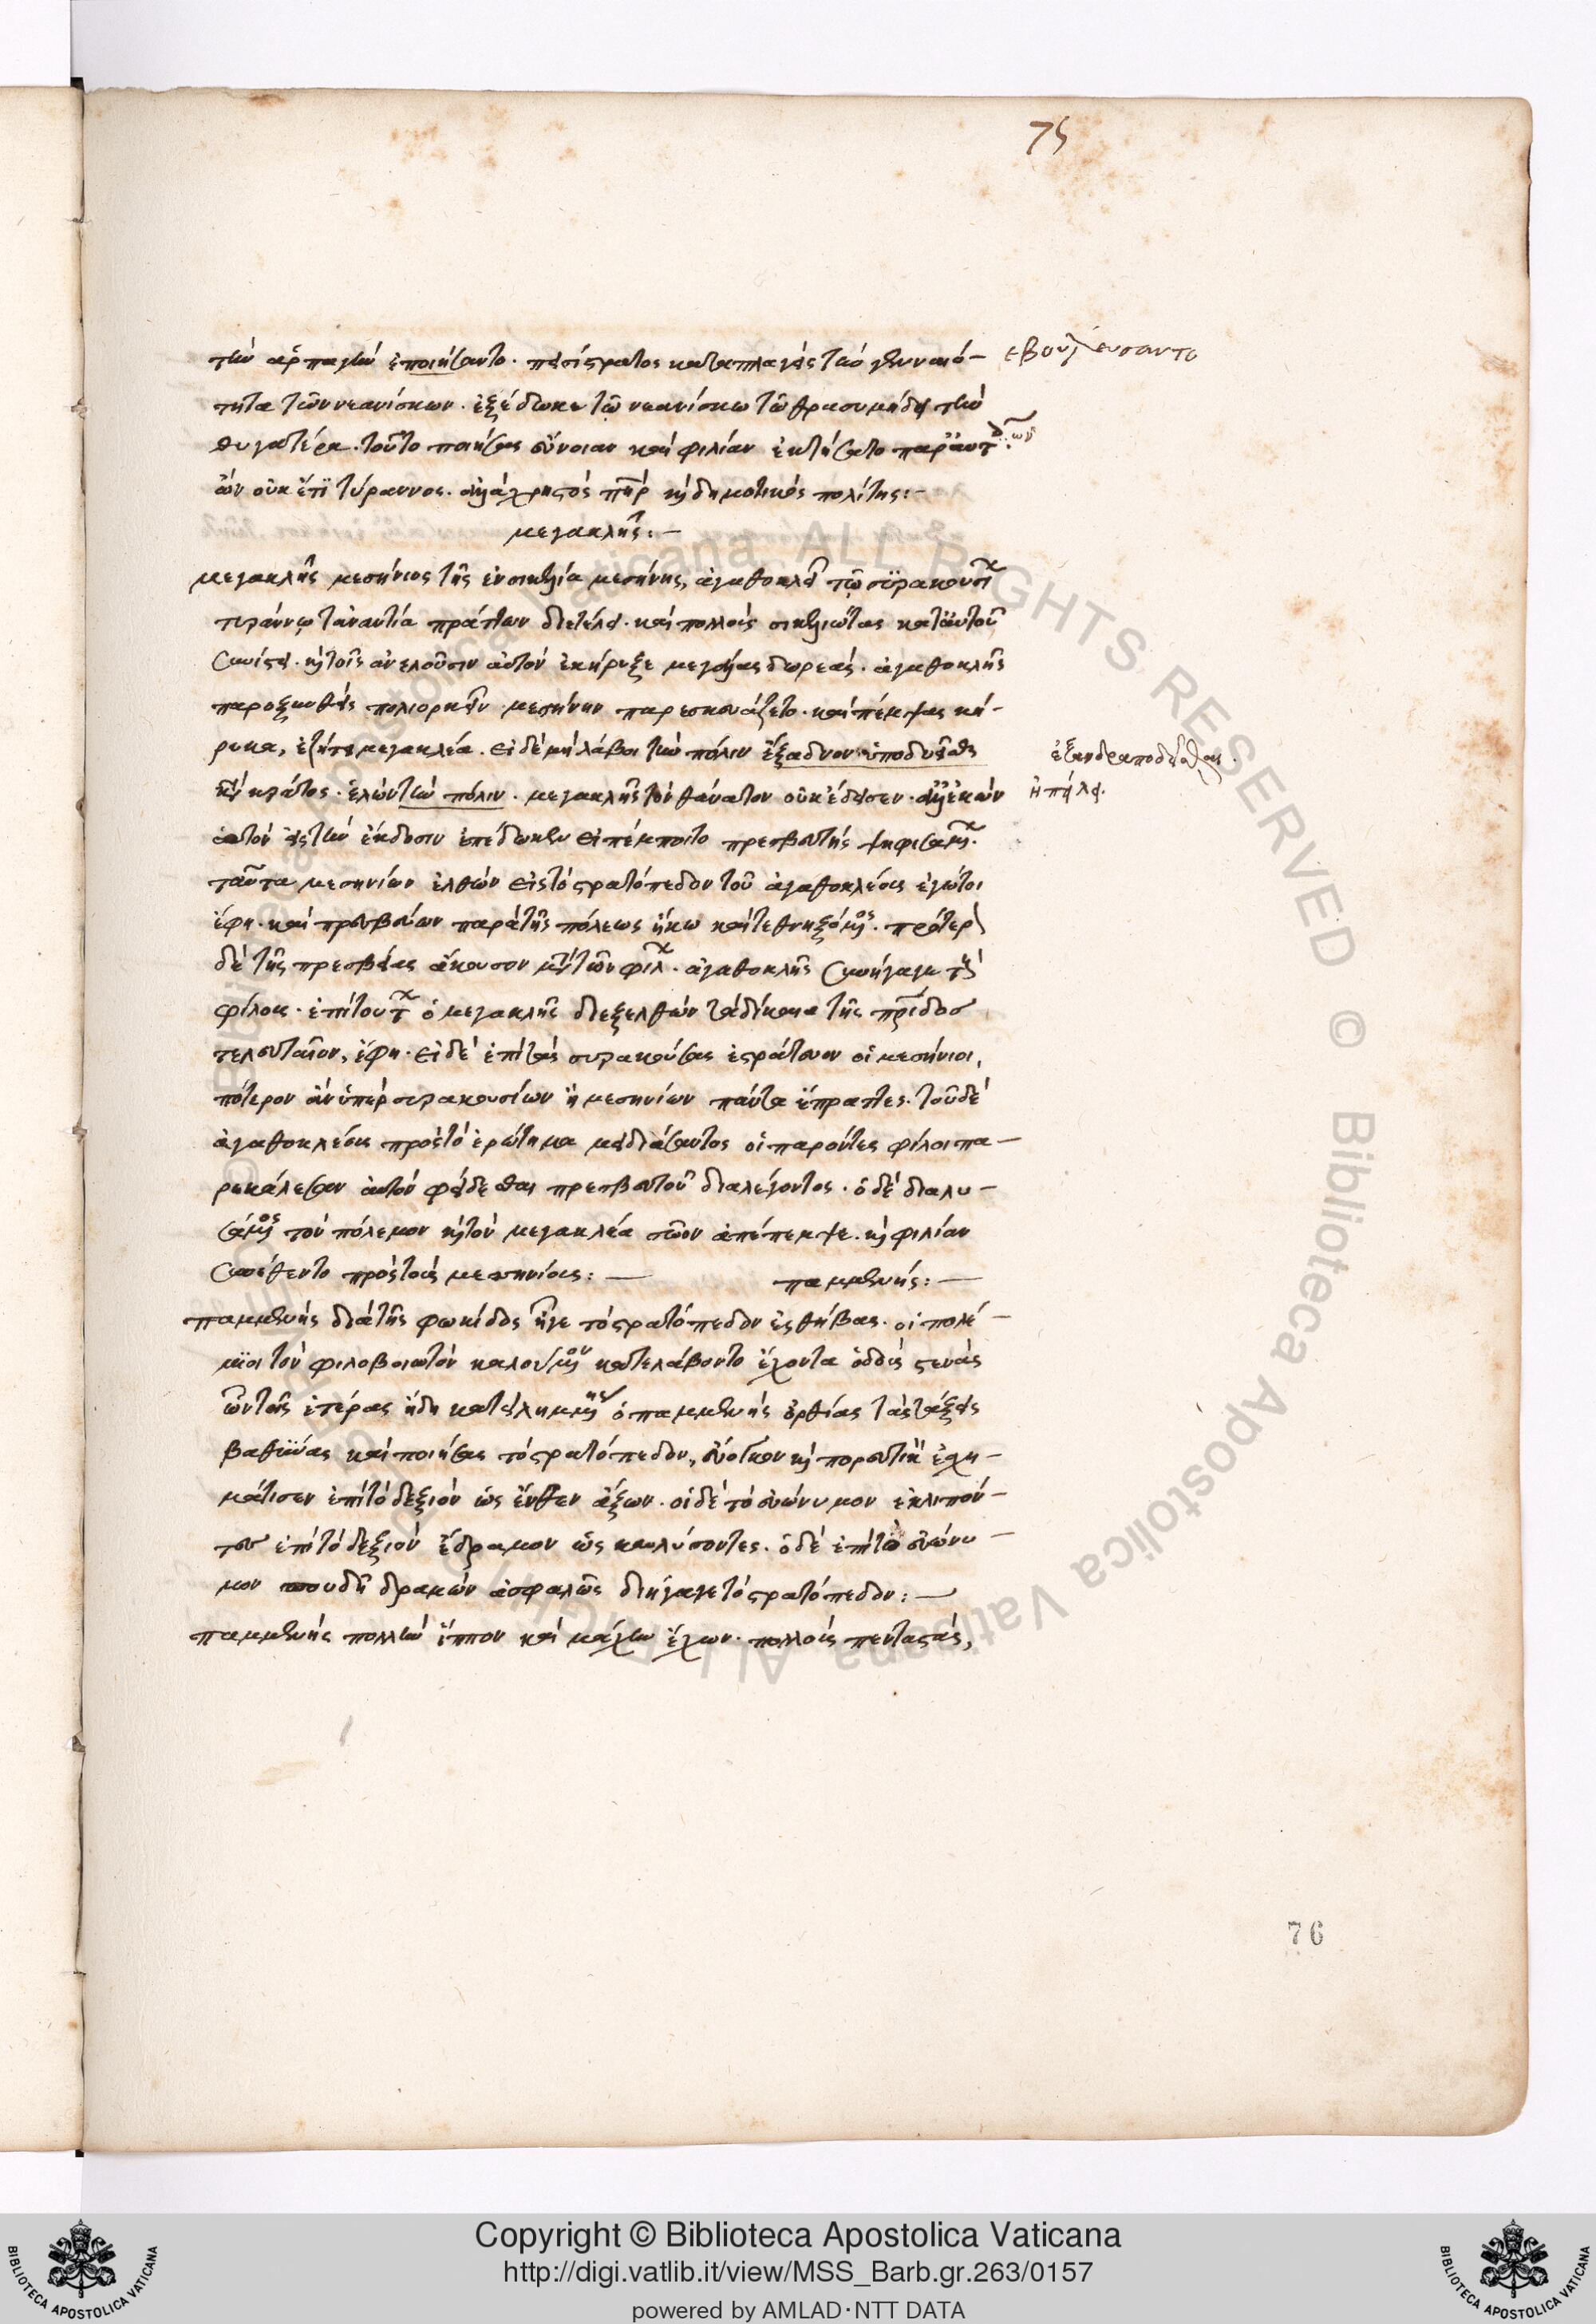 75
τὴν ἁρπαγὴν ἐποιήσαντο. πεισίστρατος καταπλαγεὶς τὴν γενναιό-
εβουλευσαντο
τητα τῶν νεανίσκων. ἐξέδωκε τῶ νεανίσκω τῶ θρασυμήδει τὴν
θυγατέρα. τοῦτο ποιήσας εὔνοιαν καὶ φιλίαν ἐκτήσατο παρ' αὐτῶν
ὢν οὐκέτι τύραννος. ἀλλὰ χρηστὸς πατὴρ καὶ δημοτικὸς πολίτης:-
μεγακλῆς:-
μεγακλῆς μεσήνιος τῆς ἐν σικελία μεσήνης, ἀγαθοκλεῖ τῶ συρακουσίων
τυράννω τἀναντία πράττων διετέλει. καὶ πολλοὺς σικελιώτας κατ' αὐτοῦ
συνίστη. καὶ τοῖς ἀνελοῦσιν αὐτὸν ἐκήρυξε μεγάλας δωρεάς. ἀγαθοκλῆς
παροξυνθεὶς πολιορκεῖν μεσήνην παρεσκευάζετο. καὶ πέμψας κή-
ρυκα, ἐζήτει μεγακλέα. εἰ δὲ μὴ λάβοι τὴν πόλιν
ἐξανδραποδιεῖσθαι.
κατὰ κράτος. ἑλὼν τὴν πόλιν. μεγακλῆς τὸν θάνατον οὐκ ἔδεισεν. ἀλλ' ἑκὼν
ἠπείλει.
αὐτὸν εἰς τὴν ἔκδοσιν ἐπέδωκεν εἰ πέμποιτο πρεσβευτής ψηφισαμένων
ταῦτα μεσηνίων ἐλθὼν εἰς τὸ στρατόπεδον τοῦ ἀγαθοκλέους ἐγώ τοι
ἔφη. καὶ πρεσβεύων παρὰ τῆς πόλεως ἥκω καὶ τεθνηξόμενος. πρότερον
δὲ τῆς πρεσβείας ἄκουσον μετὰ τῶν φίλων. ἀγαθοκλῆς συνήγαγε τοὺς
φίλους. ἐπὶ τούτων ὁ μεγακλῆς διεξελθὼν τὰ δίκαια τῆς πατρίδος
τελευταῖον, ἔφη. εἰ δὲ ἐπὶ τὰς συρακούσας ἐστράτευον οἱ μεσήνιοι,
πότερον ἂν ὑπὲρ συρακουσίων ἢ μεσηνίων πάντα ἔπραττες. τοῦ δὲ
ἀγαθοκλέους πρὸς τὸ ἐρώτημα μειδιάσαντος οἱ παρόντες φίλοι πα-
ρεκάλεσαν αὐτὸν φείδεσθαι πρεσβευτοῦ διαλέγοντος. ὁ δὲ διαλυ-
σάμενος τὸν πόλεμον καὶ τὸν μεγακλέα σῶον ἀπέπεμψε. καὶ φιλίαν
συνέθεντο πρὸς τοὺς μεσηνίους:- παμμένης:-
παμμένης διὰ τῆς φωκίδος ἦγε τὸ στρατόπεδον ἐς θήβας. οἱ πολέ-
μιοι τὸν φιλοβοιωτὸν καλούμενον κατελάβοντο ἔχοντα ὁδοὺς στενὰς
ὧν τῆς ἑτέρας ἤδη κατειλημμένης ὁ παμμένης ὀρθίας τὰς τάξεις
βαθείας καὶ ποιήσας τὸ στρατόπεδον, εὔογκον καὶ πορευτικὴ ἐχη-
μάτισεν ἐπὶ τὸ δεξιὸν ὡς ἔνθεν ἄξων. οἱ δὲ τὸ εὐώνυμον ἐκλιπόν-
τες ἐπὶ τὸ δεξιὸν ἔδραμον ὡς κωλύσοντες. ὁ δὲ ἐπὶ τὸ εὐώνυ-
μον σπουδῆ δραμὼν ἀσφαλῶς διήγαγε τὸ στρατόπεδον:-
παμμένης πολλὴν ἵππον καὶ μάχην ἔχων. πολλοὺς πελταστάς,
76
Copyright © Biblioteca Apostolica Vaticana
http://digi.vatlib.it/view/MSS_Barb.gr.263/0157
powered by AMLAD·NTT DATA